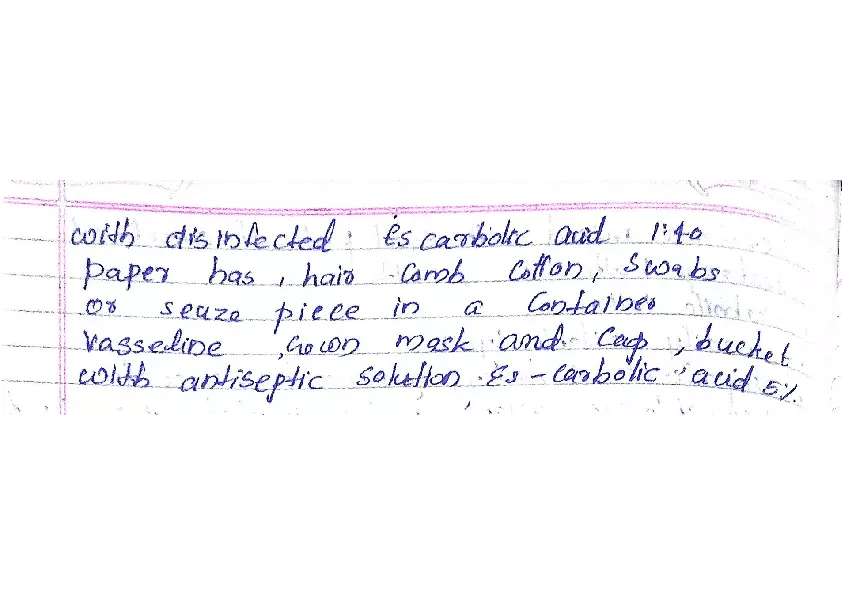 with disinfected. Es carbolic acid. 1:40
paper has, hair comb cotton, swabs
or seuze piece in a container
vasseline, Gown mask and cap, bucket
with antiseptic solution. Es - carbolic acid 5%.